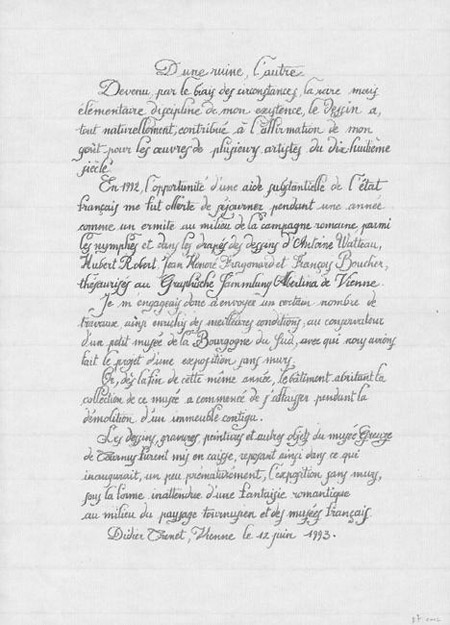 D'une ruine, l'autre.
Devenu par le biais des circonstances, la rare mais
élémentaire discipline de mon existence, le dessin a,
tout naturellement, contribué à l'affirmation de mon
goût pour les œuvres de plusieurs artistes du dix-huitième
siècle.
En 1992, l'opportunité d'une aide substantielle de l'état
français me fut offerte de séjourner pendant une année
comme un ermite au milieu de la campagne romaine, parmi
les nymphes et dans les drapés des dessins d'Antoine Watteau,
Hubert Robert, Jean Honoré Fragonard et François Boucher,
thésaurisés au Graphische Sammlung Albertina de Vienne.
Je m'engageais donc à envoyer un certain nombre de
travaux ainsi enrichis des meilleures conditions, au conservateur
d'un petit musée de la Bourgogne du Sud, avec qui nous avions
fait le projet d'une exposition sans murs.
Or, dès la fin de cette même année, le bâtiment abritant la
collection de ce musée a commencé de s'affaisser pendant la
démolition d'un immeuble contigu.
Les dessins, gravures, peintures et autres objets du musée Greuze
de Tournus furent mis en caisse, reposant ainsi dans ce qui
inaugurait, un peu prématurément, l'exposition sans murs,
sous la forme inattendue d'une fantaisie romantique
au milieu du paysage tournusien et des musées français
Didier Trenet, Vienne le 12 juin 1993.